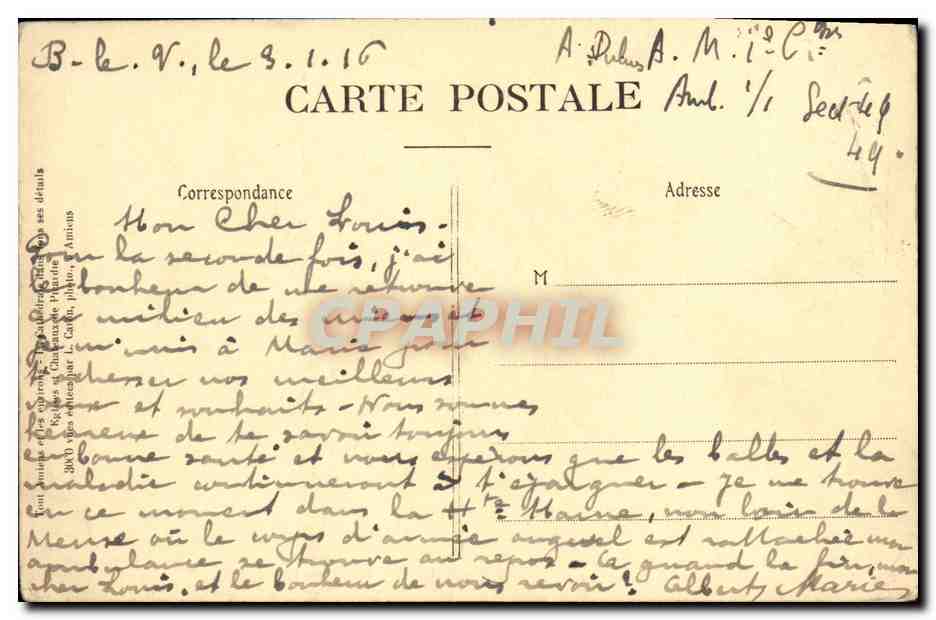 B-le.V., le 3.1.16
A. Dubus A. M. 1° Cie
Amb. 1/1 Sect
49.
CARTE POSTALE
Correspondance
Adresse
M
Mon Cher Louis.
Pour la seconde fois, j'ai
le bonheur de me retrouver
au milieu des miens et
je m'unis à Marie pour
t'adresser nos meilleurs
vœux et souhaits - Nous sommes
heureux de te savoir toujours
en bonne santé et nous espérons que les balles et la
maladie continueront à t'épargner - Je me trouve
en ce moment dans la Hte Marne, non loin de la
Meuse où le corps d'armée auquel est rattachée mon
ambulance se trouve au repos - A quand la fin, mon
cher Louis, et le bonheur de nous revoir! Albert Marie
Tout Amiens et ses environs - La Cathédrale dans tous ses détails
Eglises et Chateaux de Picardie
3000 vues éditées par L. Caron, photo., Amiens
CPAPHIL